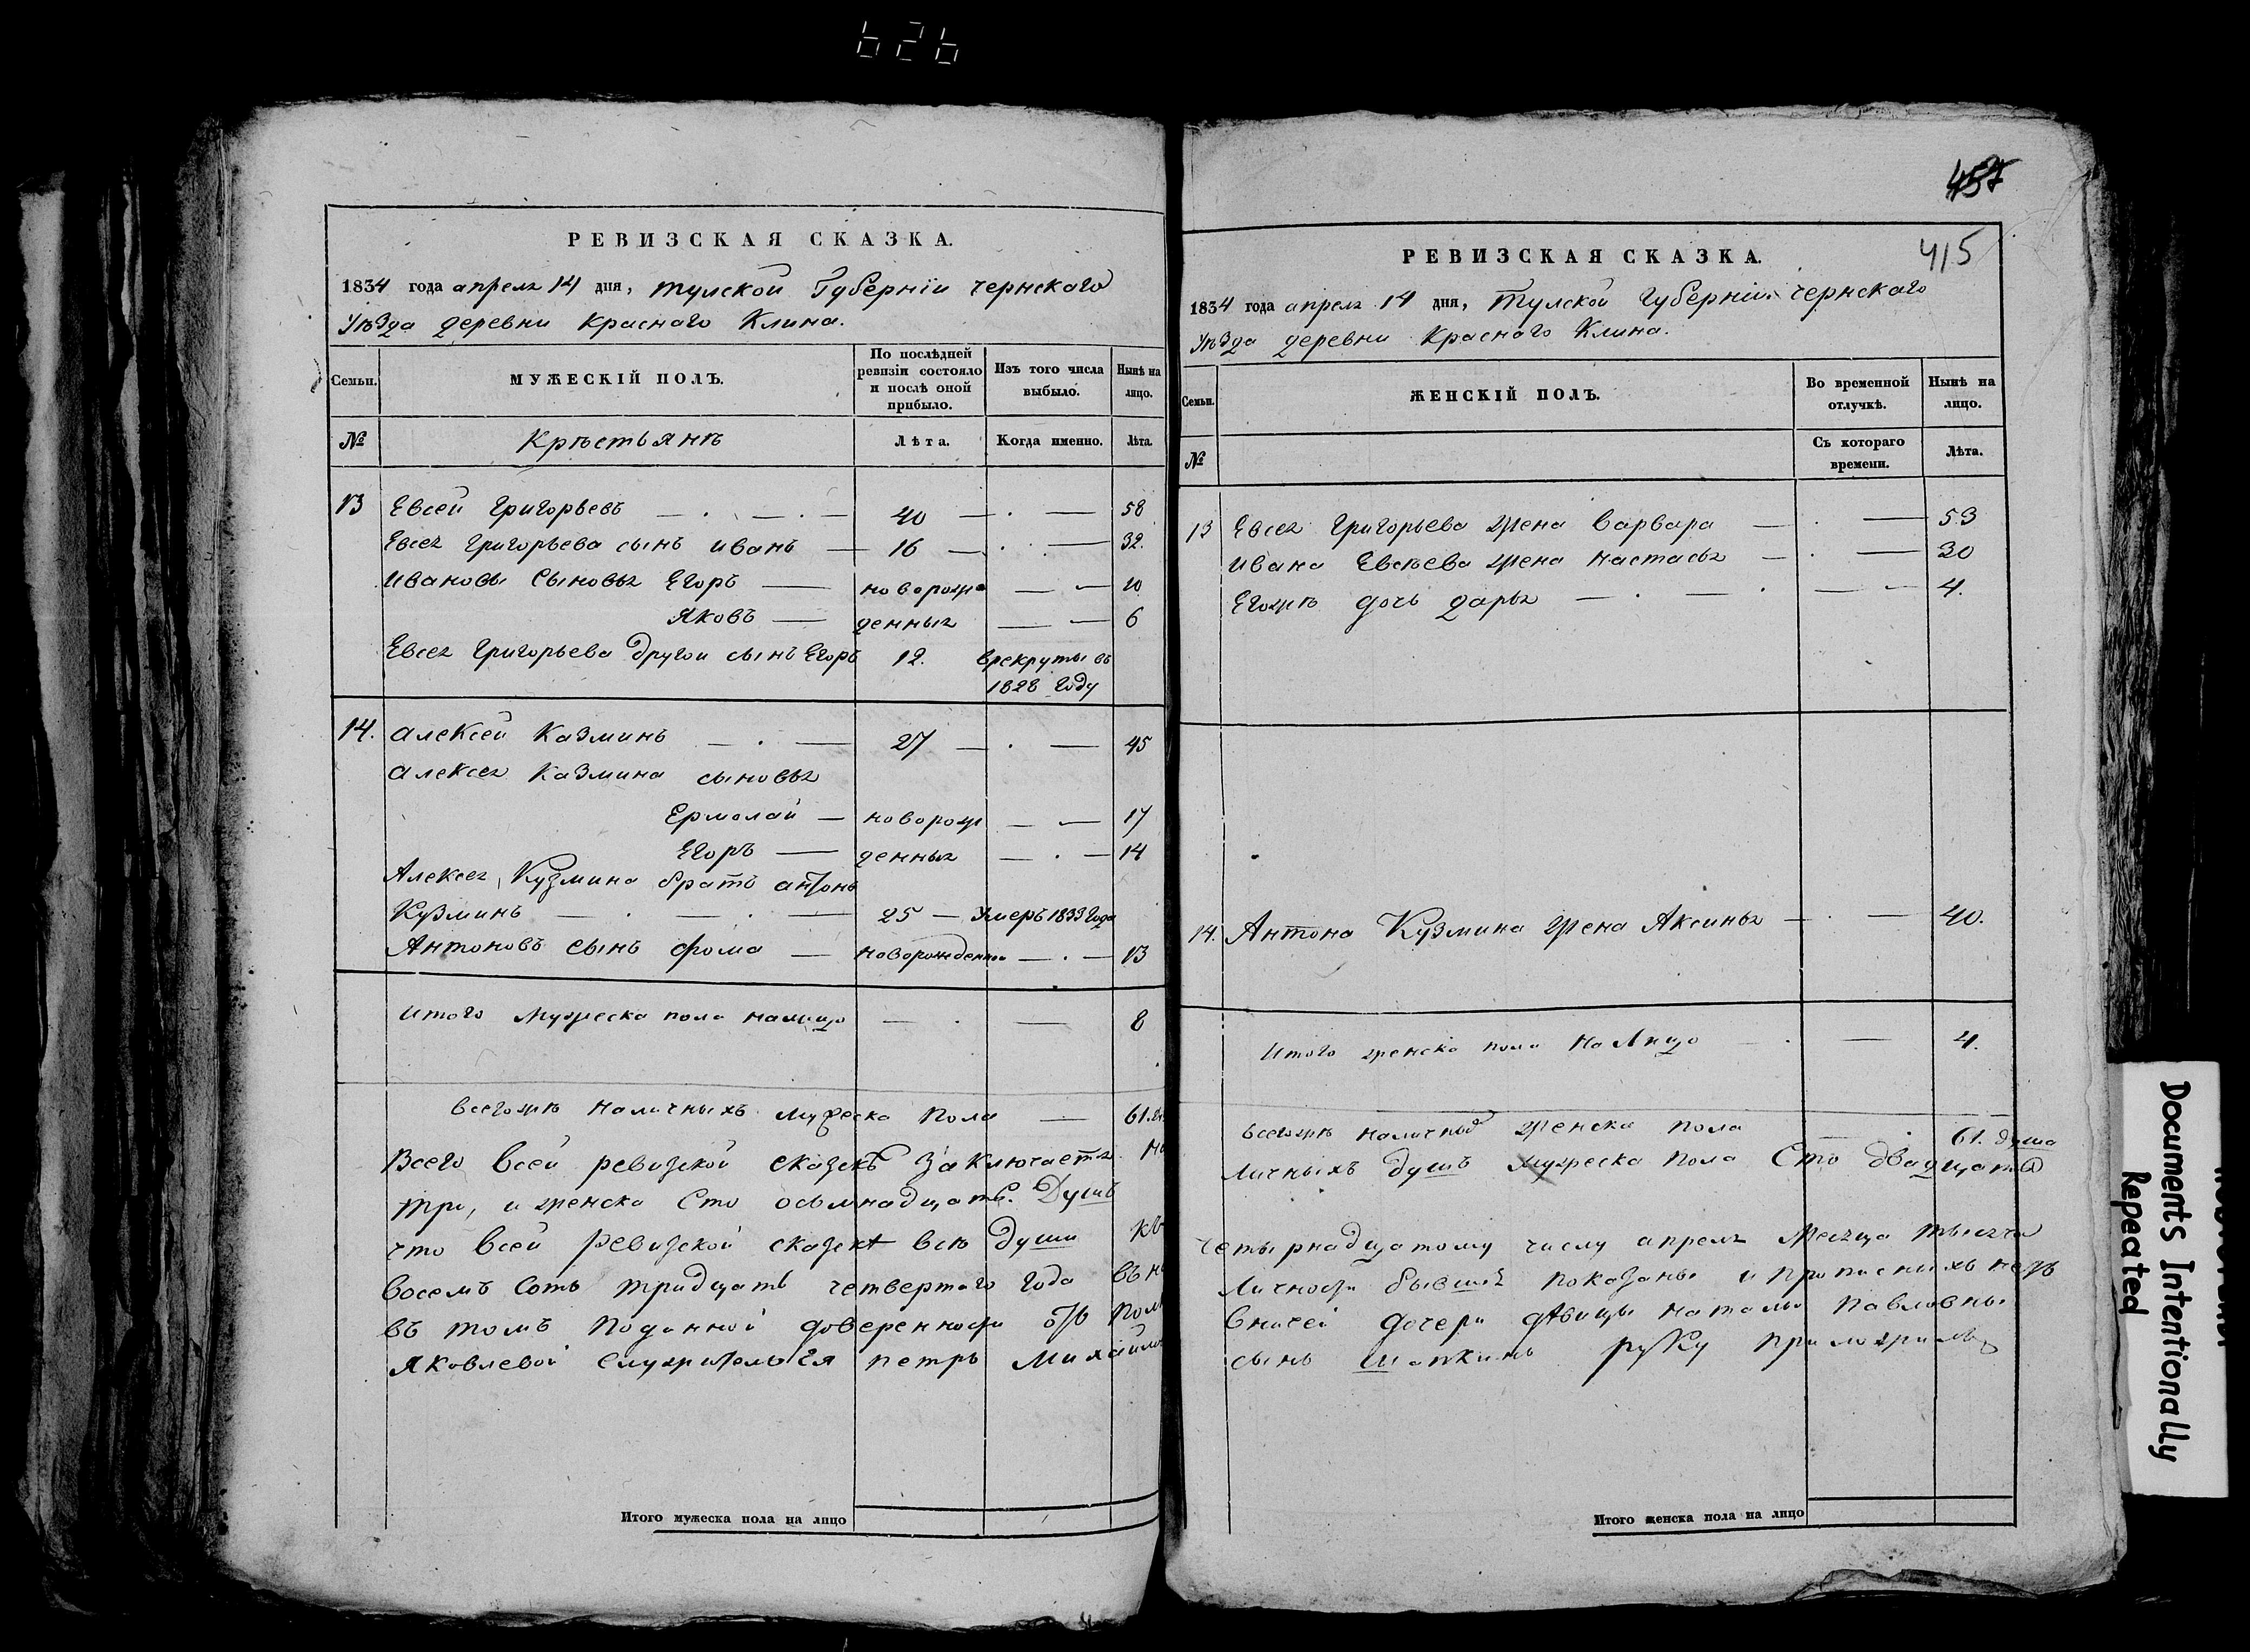 626
РЕВИЗСКАЯ СКАЗКА.
1834 года апреля 14 дня, тулской Губерніи чернскаго
Уѣзда деревни Краснаго Клина.
Семьи.
МУЖЕСКІЙ ПОЛЪ.
По послѣдней ревизіи состояло и послѣ оной прибыло.
Изъ того числа выбыло.
Нынѣ на лицо.
№
Крѣстьянѣ
Лѣта.
Когда именно.
Лѣта.
13 Евсей Григорьевъ — 40 — 58
Евсея Григорьева сынъ иванъ — 16 — 32.
ивановы Сыновья Егоръ — новорож — 10
Яковъ — денныя — 6
Евсея Григорьева другои сынъ Егоръ 12. врекруты въ
1828 Году
14. алексеи Казминъ — 27 — 45
алексея Казмина сыновья
Ермолаи — новорож — 17
Егоръ — денныя — 14
Алексея Кузмина братъ антонъ
Кузминъ — 25 — Умеръ 1833 Года
Антоновъ Сынъ фома — новорожденнои — 13
итого Мужеска пола налицо — 8
всегожѣ наличныхъ мужеска пола — 61.
Всего всей ревизской сказкѣ Заключается На
три, и женска Сто осьмнадцать. Душъ
что всей Ревизской сказкѣ всѣ души Къ
восемъ Сотъ тридцать четвертаго Года
въ томъ Поданной довѣренности отъ
Яковлевой Служителья петръ
Итого мужеска пола на лицо
457
415
РЕВИЗСКАЯ СКАЗКА.
1834 года апреля 14 дня, Тулской Губерніи чернскаго
Уѣзда деревни Краснаго Клина.
Семьи.
ЖЕНСКІЙ ПОЛЪ.
Во временной отлучкѣ.
Нынѣ на лицо.
№
Съ котораго времени.
Лѣта.
13 Евсея Григорьева жена варвара — 53
ивана Евсѣева жена настасья — 30
Егожѣ дочь дарья — 4.
14. Антона Кузмина жена Аксинья — 40.
Итого женска пола на Лицо — 4.
всегожѣ наличной женска пола 61. душа
личныхъ душъ мужеска пола Сто двадцать
четырнадцатому числу апреля месяца тысяча
Личности бывшія показаны и прописныхъ нетъ
дочери дѣвицы натальи павловны
сынъ шапкинъ руку приложилъ
Итого женска пола на лицо
Documents Intentionally
Repeated